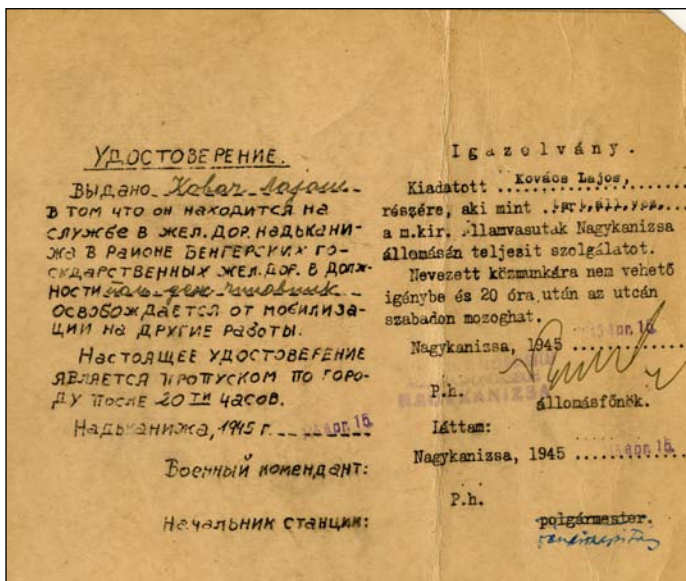 УДОСТОВЕРЕНИЕ.
ВЫДАНО Ковач Лайош
В ТОМ ЧТО ОН НАХОДИТСЯ НА
СЛУЖБЕ В ЖЕЛ. ДОР. НАДЬКАНИ-
ЖА В РАИОНЕ ВЕНГЕРСКИХ ГО-
СУДАРСТВЕННЫХ ЖЕЛ. ДОР. В ДОЛЖ-
НОСТИ
ОСВОБОЖДАЕТСЯ ОТ МОБИЛИЗА-
ЦИИ НА ДРУГИЕ РАБОТЫ.
НАСТОЯЩЕЕ УДОСТОВЕРЕНИЕ
ЯВЛЯЕТСЯ ПРОПУСКОМ ПО ГОРО-
ДУ ПОСЛЕ 20 ТИ ЧАСОВ.
НАДЬКАНИЖА, 1945 Г. ápr. 15.
ВОЕННЫЙ КОМЕНДАНТ:
НАЧАЛЬНИК СТАНЦИИ:
Igazolvány.
Kiadatott ...Kovács Lajos,
részére, aki mint
a m.kir. államvasutak Nagykanizsa
állomásán teljesit szolgálatot.
Nevezett közmunkára nem vehető
igénybe és 20 óra után az utcán
szabadon mozoghat.
Nagykanizsa, 1945 ápr. 15.
NAGYKANIZSA
P.h.
állomásfőnök.
Láttam:
Nagykanizsa, 1945 ápr. 15.
P.h.
polgármester.